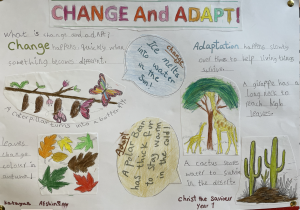 CHANGE And ADAPT!
What is change and adapt?
Change happens quickly when
something becomes different.
Change
Ice melts
into water
in the
Sun!
Adaptation happens slowly
over time to help living things
survive.
A giraffe has
long neck to
reach high
leaves.
A caterpillar turns into a butterfly
leaves
change
colour in
autumn.
Adapt
A Polar Bear
has thick fur
to stay warm
in the cold!
A cactus saves
water to survive
in the desert.
Christ the Saviour
Year 1